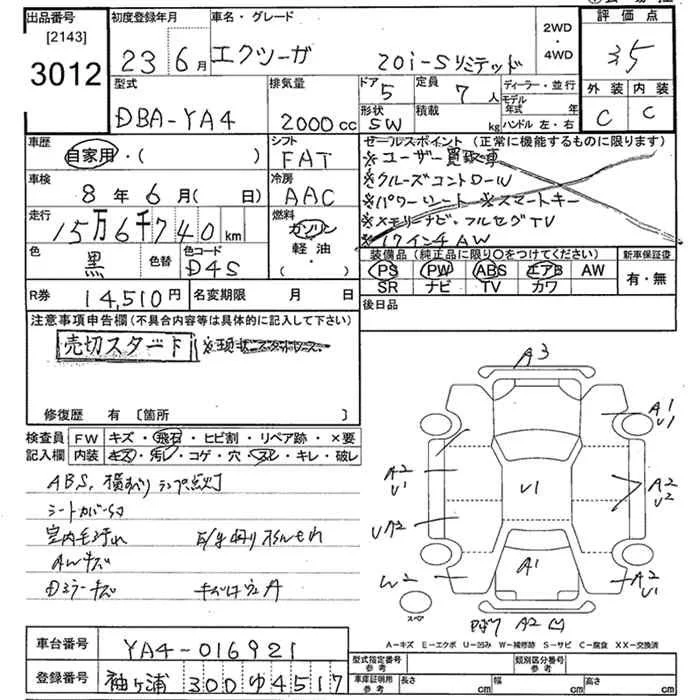 出品番号 初度登録年月 車名・グレード 評価点
[2143]
3012
23 6月 エクシーガ 20i-Sリミテッド 2WD・4WD 35
型式 排気量 ドア 5 定員 7人 ディーラー・並行 外装 内装
モデル年式 年
DBA-YA4 2000cc 形状 SW 積載 kg ハンドル 左・右 C C
車歴 シフト セールスポイント(正常に機能するものに限ります)
自家用・( ) FAT ※ユーザー買取車
車検 冷房 ※クルーズコントロール
8年6月(日) AAC ※パワーシート ※スマートキー
走行 燃料 ※メモリーナビ・フルセグTV
15万6千740km ガソリン ※17インチAW
軽油
色 色替 色コード 装備品(純正品に限り○をつけてください) 新車保証書
黒 D4S PS PW ABS エアB AW 有・無
SR ナビ TV カワ
R券 14,510円 名変期限 月 日 後日品
注意事項申告欄(不具合内容等は具体的に記入して下さい)
売切スタート
修復歴 有 [箇所 ]
検査員 FW キズ・飛石・ヒビ割・リペア跡・×要
記入欄 内装 キズ・汚レ・コゲ・穴・スレ・キレ・破レ
ABS,横すべりランプ点灯
シートカバー
室内毛汚れ
AWキズ
Dミラーキズ
A3
A1
U1
A2
U1
U1
A2
U2
UA2
W2
A1
A2
U1
スペア
A2 凹
A-キズ E-エクボ U-凹み W-補修跡 S-サビ C-腐食 XX-交換済
車台番号 YA4-016921 型式指定番号 参考 類別区分番号 参考
登録番号 袖ヶ浦 300 ゆ 4517 車庫証明用 参考 長さ cm 幅 cm 高さ cm